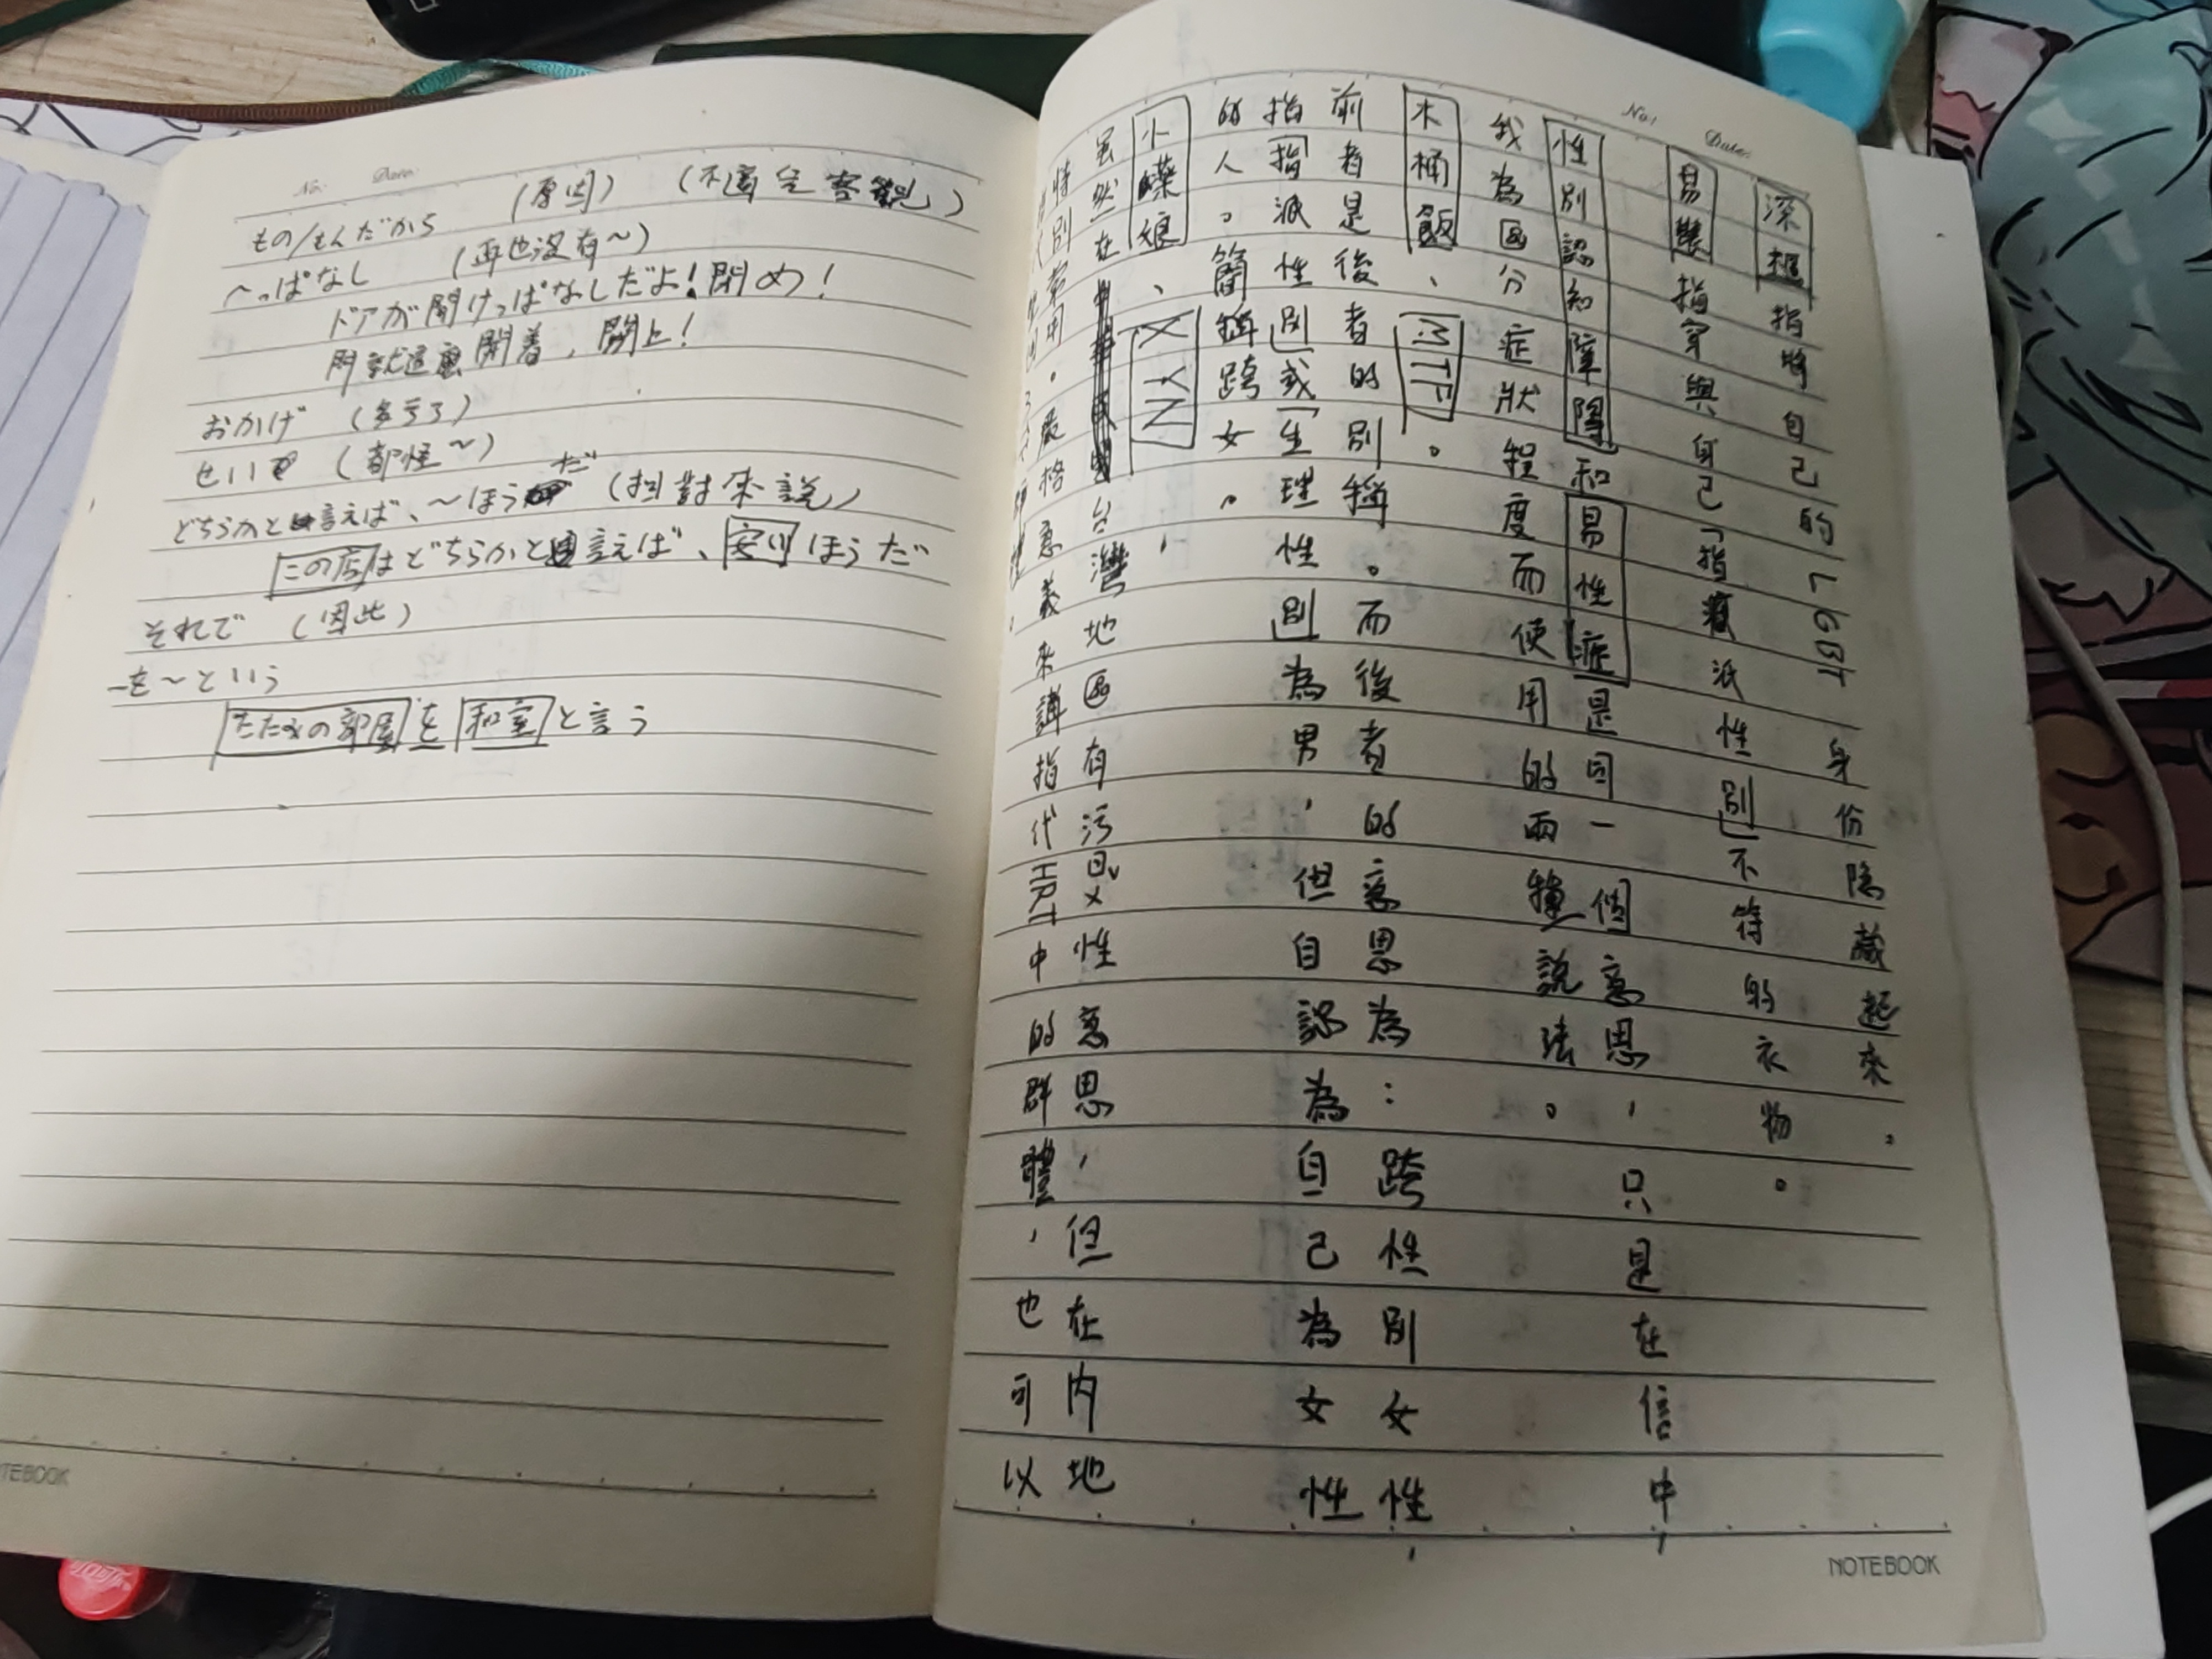 No. Date.
もの/もんだから (原因) (不適合客觀)
～っぱなし (再也沒有～)
ドアが開けっぱなしだよ!閉め!
門就這麼開着,關上!
おかげ (多亏了)
せいで (都怪～)
どちらかと言えば、～ほうだ (相對來說)
この店はどちらかと言えば、安いほうだ
それで (因此)
を～という
たたみの部屋を和室と言う
NOTEBOOK
No. Date.
深櫃指將自己的LGBT身份隐藏起來。
易裝指穿與自己「指派性別」不符的衣物。
性別認知障礙和易性症是同一個意思,只是在信中,
我為區分症狀程度而使用的兩種說法。
木桶飯、MTF。
前者是後者的別稱。而後者的意思為:跨性別女性,
指「指派性別」或「生理性別」為男,但自認為自己為女性
的人。簡稱跨女。
小蝶娘、XYN,
虽然在台灣地區有污名性意思,但在内地
特別常用。嚴格意義來講指代HRT中的群體,也可以
NOTEBOOK